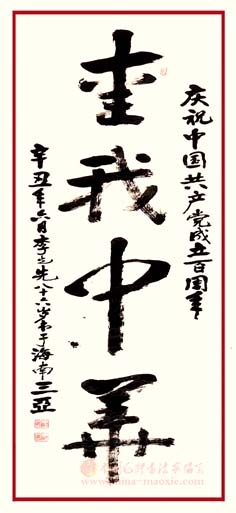 庆祝中国共产党成立百周年
爱我中華
辛丑年六月李之先八十六岁书于海南三亞
www.china-maoxie.com